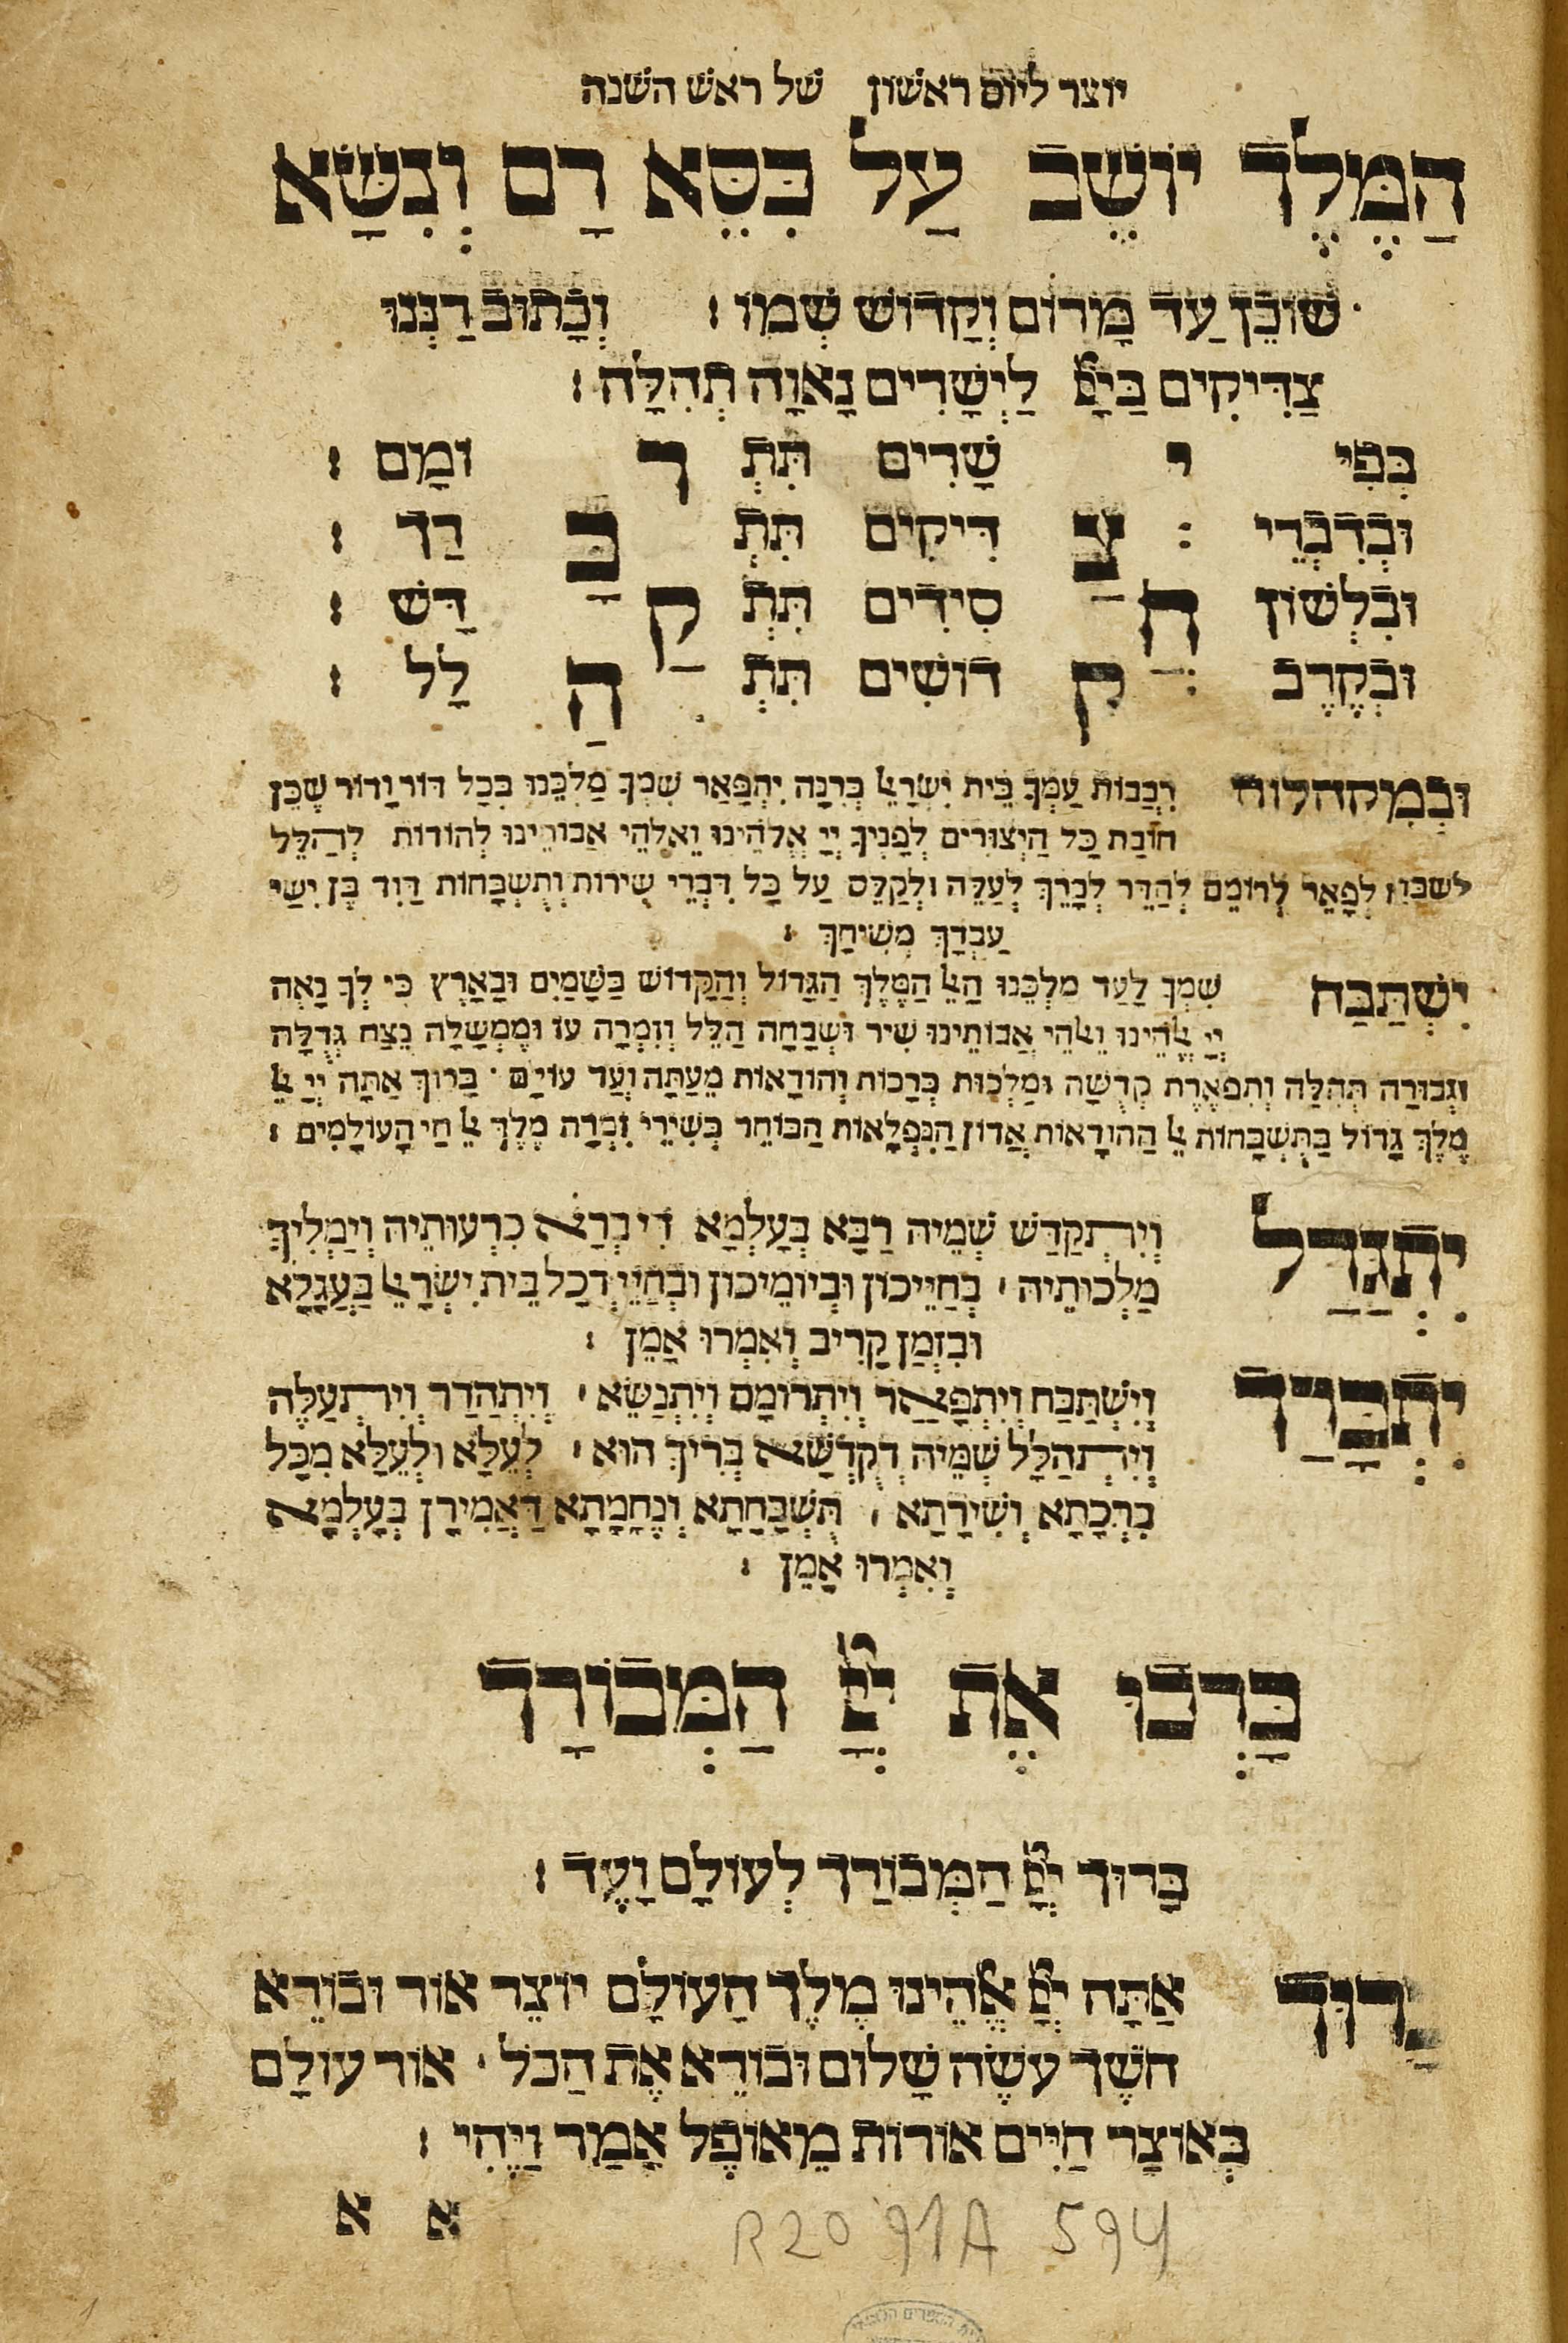 יוצר ליום ראשון של ראש השנה
הַמֶּלֶךְ יוֹשֵׁב עַל כִּסֵּא רָם וְנִשָּׂא
שׁוֹכֵן עַד מָרוֹם וְקָדוֹשׁ שְׁמוֹ׃ וְכָתוּב רַנְּנוּ
צַדִּיקִים בַּיְיָ לַיְשָׁרִים נָאוָה תְהִלָּה׃
בְּפִי יְ שָׁרִים תִּתְ ר וֹמָם׃
וּבְדִבְרֵי צַ דִּיקִים תִּתְ בָּ רַךְ׃
וּבִלְשׁוֹן חֲ סִידִים תִּתְ קַ דָּשׁ׃
וּבְקֶרֶב קְ דוֹשִׁים תִּתְ הַ לָּל׃
וּבְמִקְהֲלוֹת רִבְבוֹת עַמְּךָ בֵּית יִשְׂרָאֵל בְּרִנָּה יִתְפָּאַר שִׁמְךָ מַלְכֵּנוּ בְּכָל דּוֹר וָדוֹר שֶׁכֵּן
חוֹבַת כָּל הַיְצוּרִים לְפָנֶיךָ יְיָ אֱלֹהֵינוּ וֵאלֹהֵי אֲבוֹתֵינוּ לְהוֹדוֹת לְהַלֵּל
לשבּ׳ לְפָאֵר לְרוֹמֵם לְהַדֵּר לְבָרֵךְ לְעַלֵּה וּלְקַלֵּס עַל כָּל דִּבְרֵי שִׁירוֹת וְתִשְׁבָּחוֹת דָּוִד בֶּן יִשַׁי
עַבְדְּךָ מְשִׁיחֶךָ׃
יִשְׁתַּבַּח שִׁמְךָ לָעַד מַלְכֵּנוּ הָאֵל הַמֶּלֶךְ הַגָּדוֹל וְהַקָּדוֹשׁ בַּשָּׁמַיִם וּבָאָרֶץ כִּי לְךָ נָאֶה
יְיָ אֱלֹהֵינוּ וֵאלֹהֵי אֲבוֹתֵינוּ שִׁיר וּשְׁבָחָה הַלֵּל וְזִמְרָה עוֹז וּמֶמְשָׁלָה נֶצַח גְּדֻלָּה
וּגְבוּרָה תְּהִלָּה וְתִפְאֶרֶת קְדֻשָּׁה וּמַלְכוּת בְּרָכוֹת וְהוֹדָאוֹת מֵעַתָּה וְעַד עוֹלָם׃ בָּרוּךְ אַתָּה יְיָ אֵל
מֶלֶךְ גָּדוֹל בַּתִּשְׁבָּחוֹת אֵל הַהוֹדָאוֹת אֲדוֹן הַנִּפְלָאוֹת הַבּוֹחֵר בְּשִׁירֵי זִמְרָה מֶלֶךְ אֵל חַי הָעוֹלָמִים׃
יִתְגַּדַּל וְיִתְקַדַּשׁ שְׁמֵיהּ רַבָּא בְּעָלְמָא דִי בְרָא כִרְעוּתֵיהּ וְיַמְלִיךְ
מַלְכוּתֵיהּ׳ בְּחַיֵּיכוֹן וּבְיוֹמֵיכוֹן וּבְחַיֵּי דְכָל בֵּית יִשְׂרָאֵל בַּעֲגָלָא
וּבִזְמַן קָרִיב וְאִמְרוּ אָמֵן׃
יִתְבָּרַךְ וְיִשְׁתַּבַּח וְיִתְפָּאַר וְיִתְרוֹמַם וְיִתְנַשֵּׂא׳ וְיִתְהַדַּר וְיִתְעַלֶּה
וְיִתְהַלָּל שְׁמֵיהּ דְקֻדְשָׁא בְּרִיךְ הוּא׳ לְעֵלָּא וּלְעֵלָּא מִכָּל
בִּרְכָתָא וְשִׁירָתָא׳ תֻּשְׁבְּחָתָא וְנֶחָמָתָא דַּאֲמִירָן בְּעָלְמָא
וְאִמְרוּ אָמֵן׃
בָּרְכוּ אֶת יְיָ הַמְבוֹרָךְ
בָּרוּךְ יְיָ הַמְּבוֹרָךְ לְעוֹלָם וָעֶד׃
בָּרוּךְ אַתָּה יְיָ אֱלֹהֵינוּ מֶלֶךְ הָעוֹלָם יוֹצֵר אוֹר וּבוֹרֵא
חֹשֶׁךְ עֹשֶׂה שָׁלוֹם וּבוֹרֵא אֶת הַכֹּל׳ אוֹר עוֹלָם
בְּאוֹצַר חַיִּים אוֹרוֹת מֵאוֹפֶל אָמַר וַיֶּהִי׃
א א
R20 91A 594